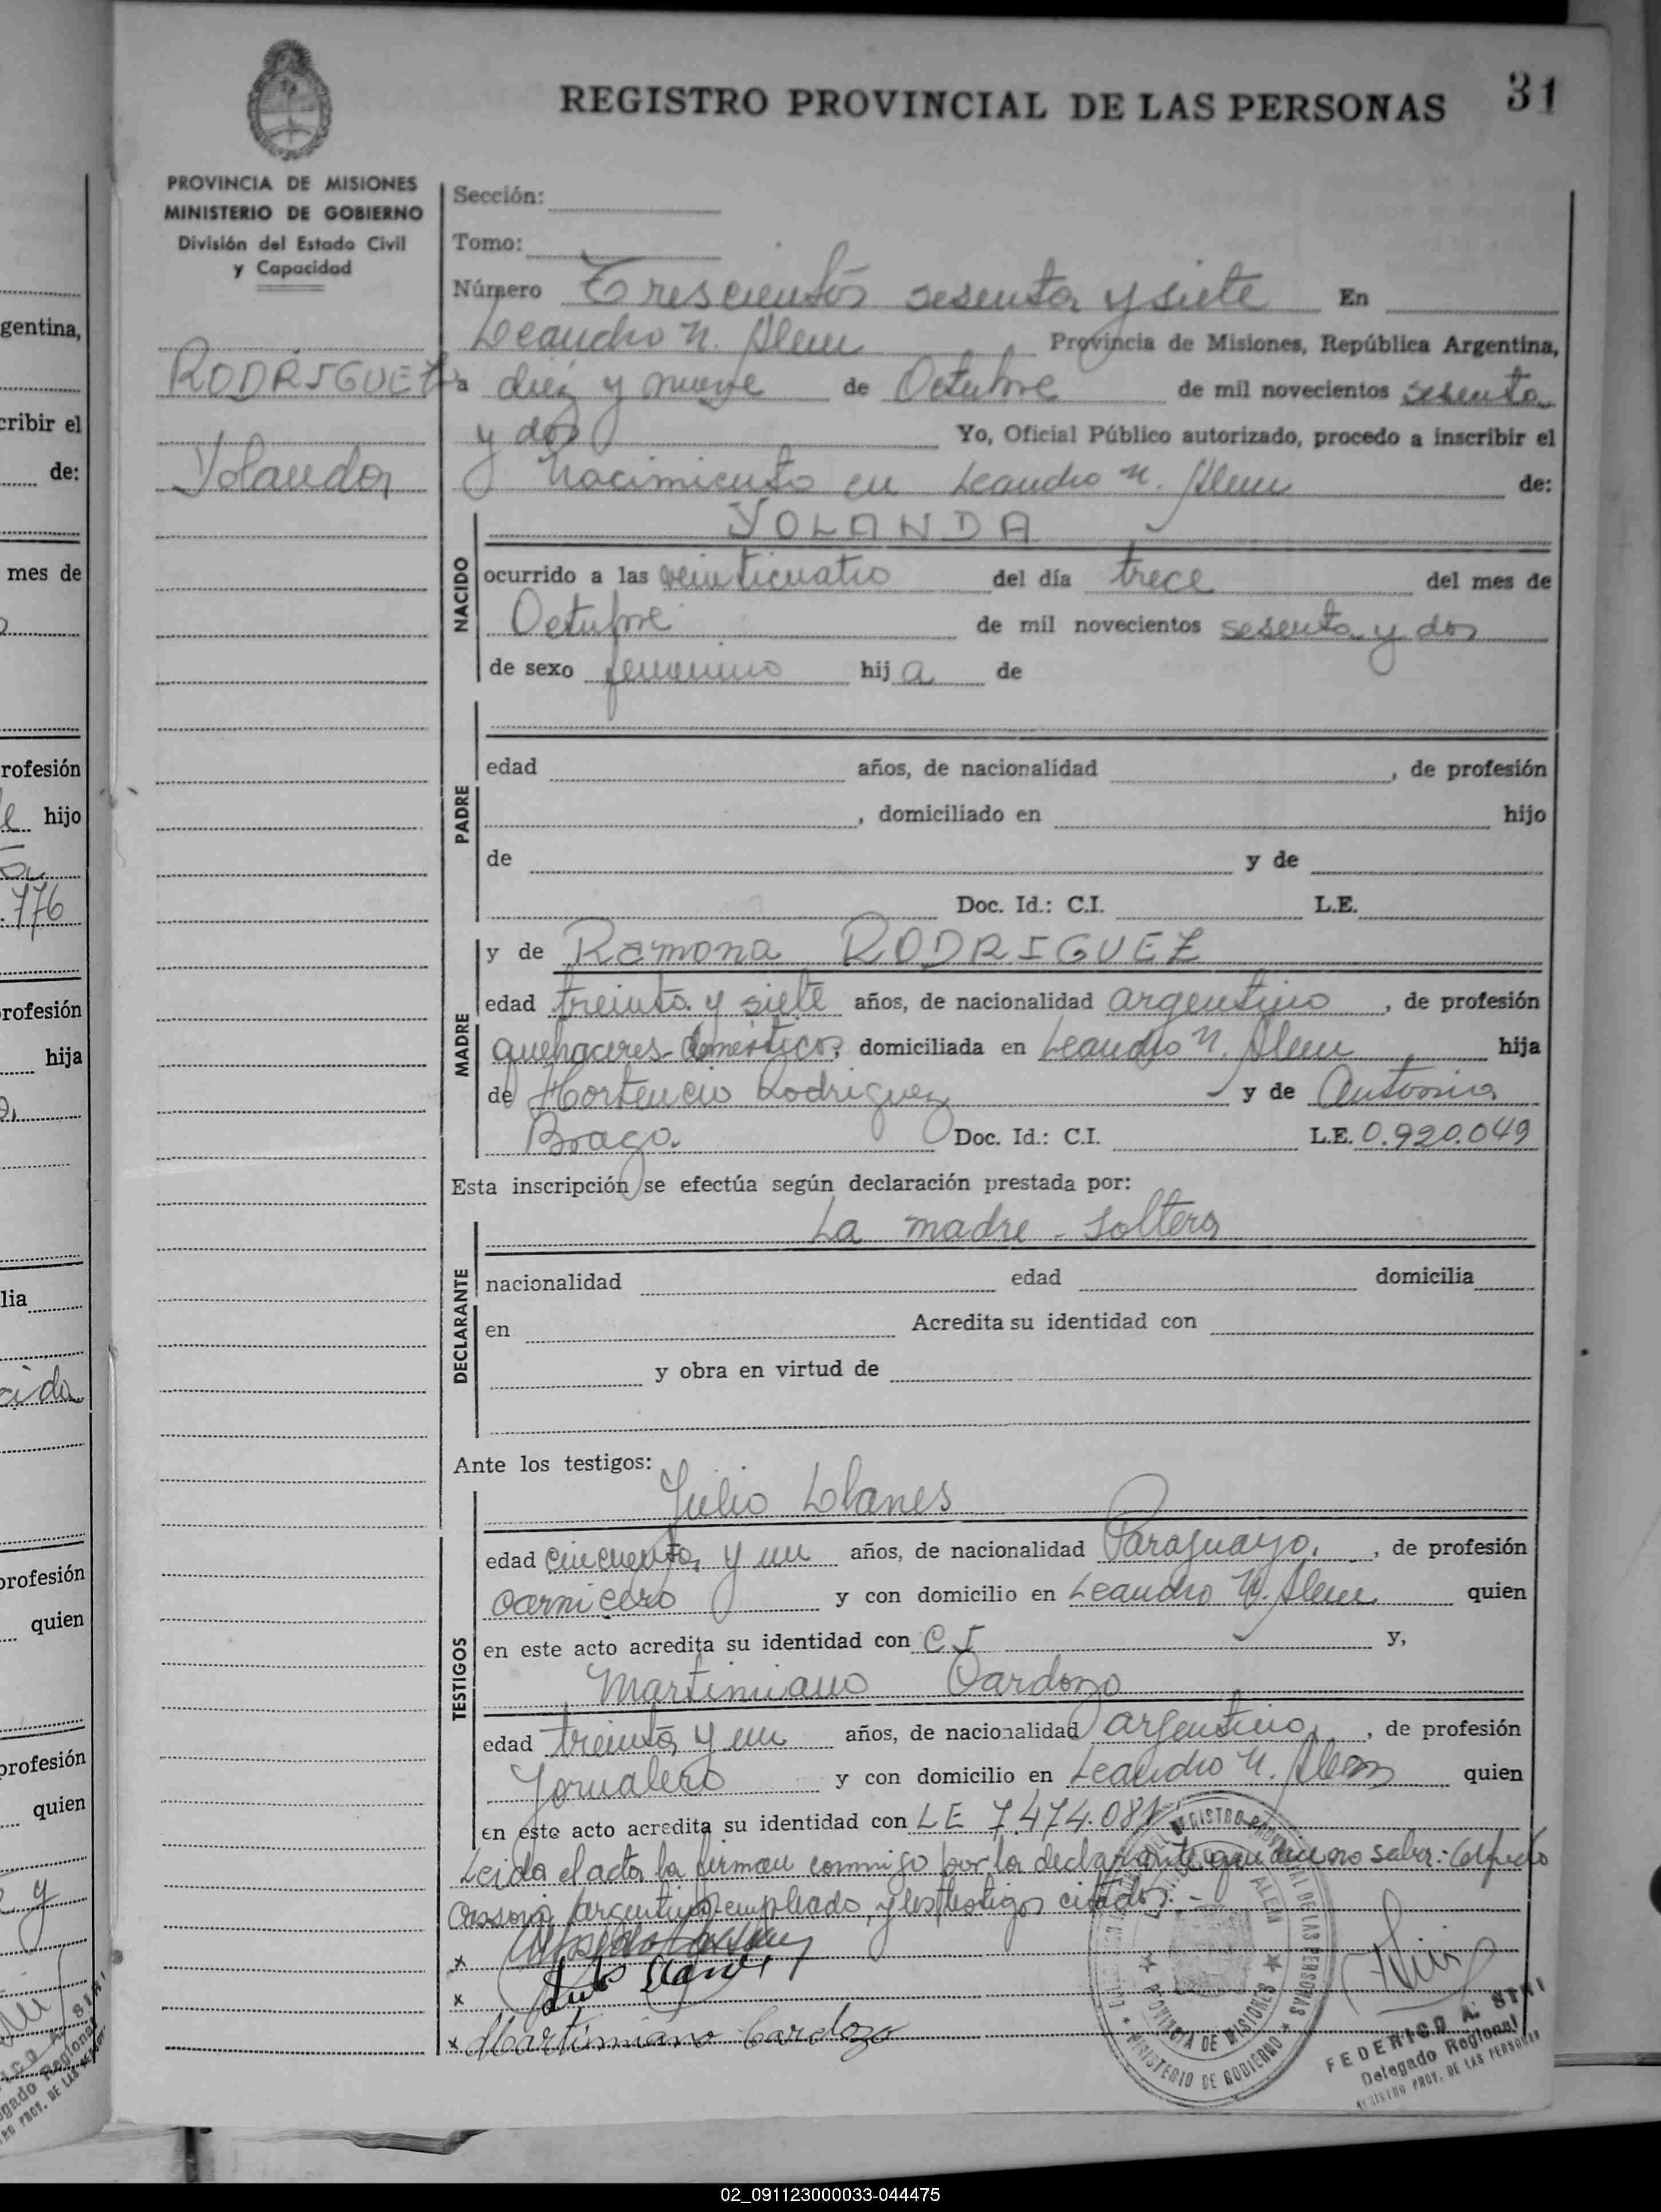 REGISTRO PROVINCIAL DE LAS PERSONAS
31
PROVINCIA DE MISIONES
MINISTERIO DE GOBIERNO
División del Estado Civil
y Capacidad
RODRIGUEZ
Yolanda
Sección:
Tomo:
Número Trescientos sesenta y siete En
Leandro N. Alem Provincia de Misiones, República Argentina,
a diez y nueve de Octubre de mil novecientos sesenta
y dos Yo, Oficial Público autorizado, procedo a inscribir el
nacimiento en Leandro N. Alem de:
NACIDO
YOLANDA
ocurrido a las veinticuatro del día trece del mes de
Octubre de mil novecientos sesenta y dos
de sexo femenino hij a de
PADRE
edad años, de nacionalidad , de profesión
, domiciliado en hijo
de y de
Doc. Id.: C.I. L.E.
MADRE
y de Ramona RODRIGUEZ
edad treinta y siete años, de nacionalidad argentino , de profesión
quehaceres domésticos, domiciliada en Leandro N. Alem hija
de Hortencio Rodriguez y de Antonia
Braga Doc. Id.: C.I. L.E. 0.920.049
Esta inscripción se efectúa según declaración prestada por:
DECLARANTE
La madre - soltera
nacionalidad edad domicilia
en Acredita su identidad con
y obra en virtud de
Ante los testigos:
TESTIGOS
Julio Llanes
edad cincuenta y un años, de nacionalidad Paraguayo, , de profesión
carnicero y con domicilio en Leandro N. Alem quien
en este acto acredita su identidad con C I y,
Martimiano Cardozo
edad treinta y un años, de nacionalidad argentino, , de profesión
Jornalero y con domicilio en Leandro N. Alem quien
en este acto acredita su identidad con LE 7.474.081
Leida el acta la firman conmigo por la declarante que no saber:
argentino empleado, y los testigos citados.-
x
x
x Martimiano Cardozo
REGISTRO PROVINCIAL DE LAS PERSONAS
ALEM
PROVINCIA DE MISIONES
MINISTERIO DE GOBIERNO
FEDERICO A.
Delegado Regional
REGISTRO PROV. DE LAS PERSONAS
gentina,
cribir el
de:
mes de
rofesión
hijo
.776
rofesión
hija
lia
profesión
quien
profesión
quien
y
02_091123000033-044475